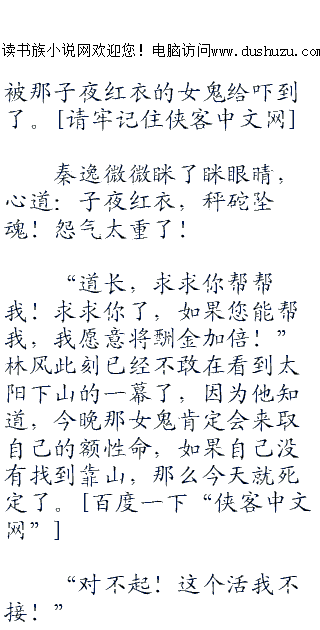 读书族小说网欢迎您！电脑访问www.dushuzu.com
被那子夜红衣的女鬼给吓到
了。[请牢记住侠客中文网]
秦逸微微眯了眯眼睛，
心道：子夜红衣，秤砣坠
魂！怨气太重了！
“道长，求求你帮帮
我！求求你了，如果您能帮
我，我愿意将酬金加倍！”
林风此刻已经不敢在看到太
阳下山的一幕了，因为他知
道，今晚那女鬼肯定会来取
自己的额性命，如果自己没
有找到靠山，那么今天就死
定了。[百度一下“侠客中文
网”]
“对不起！这个活我不
接！”